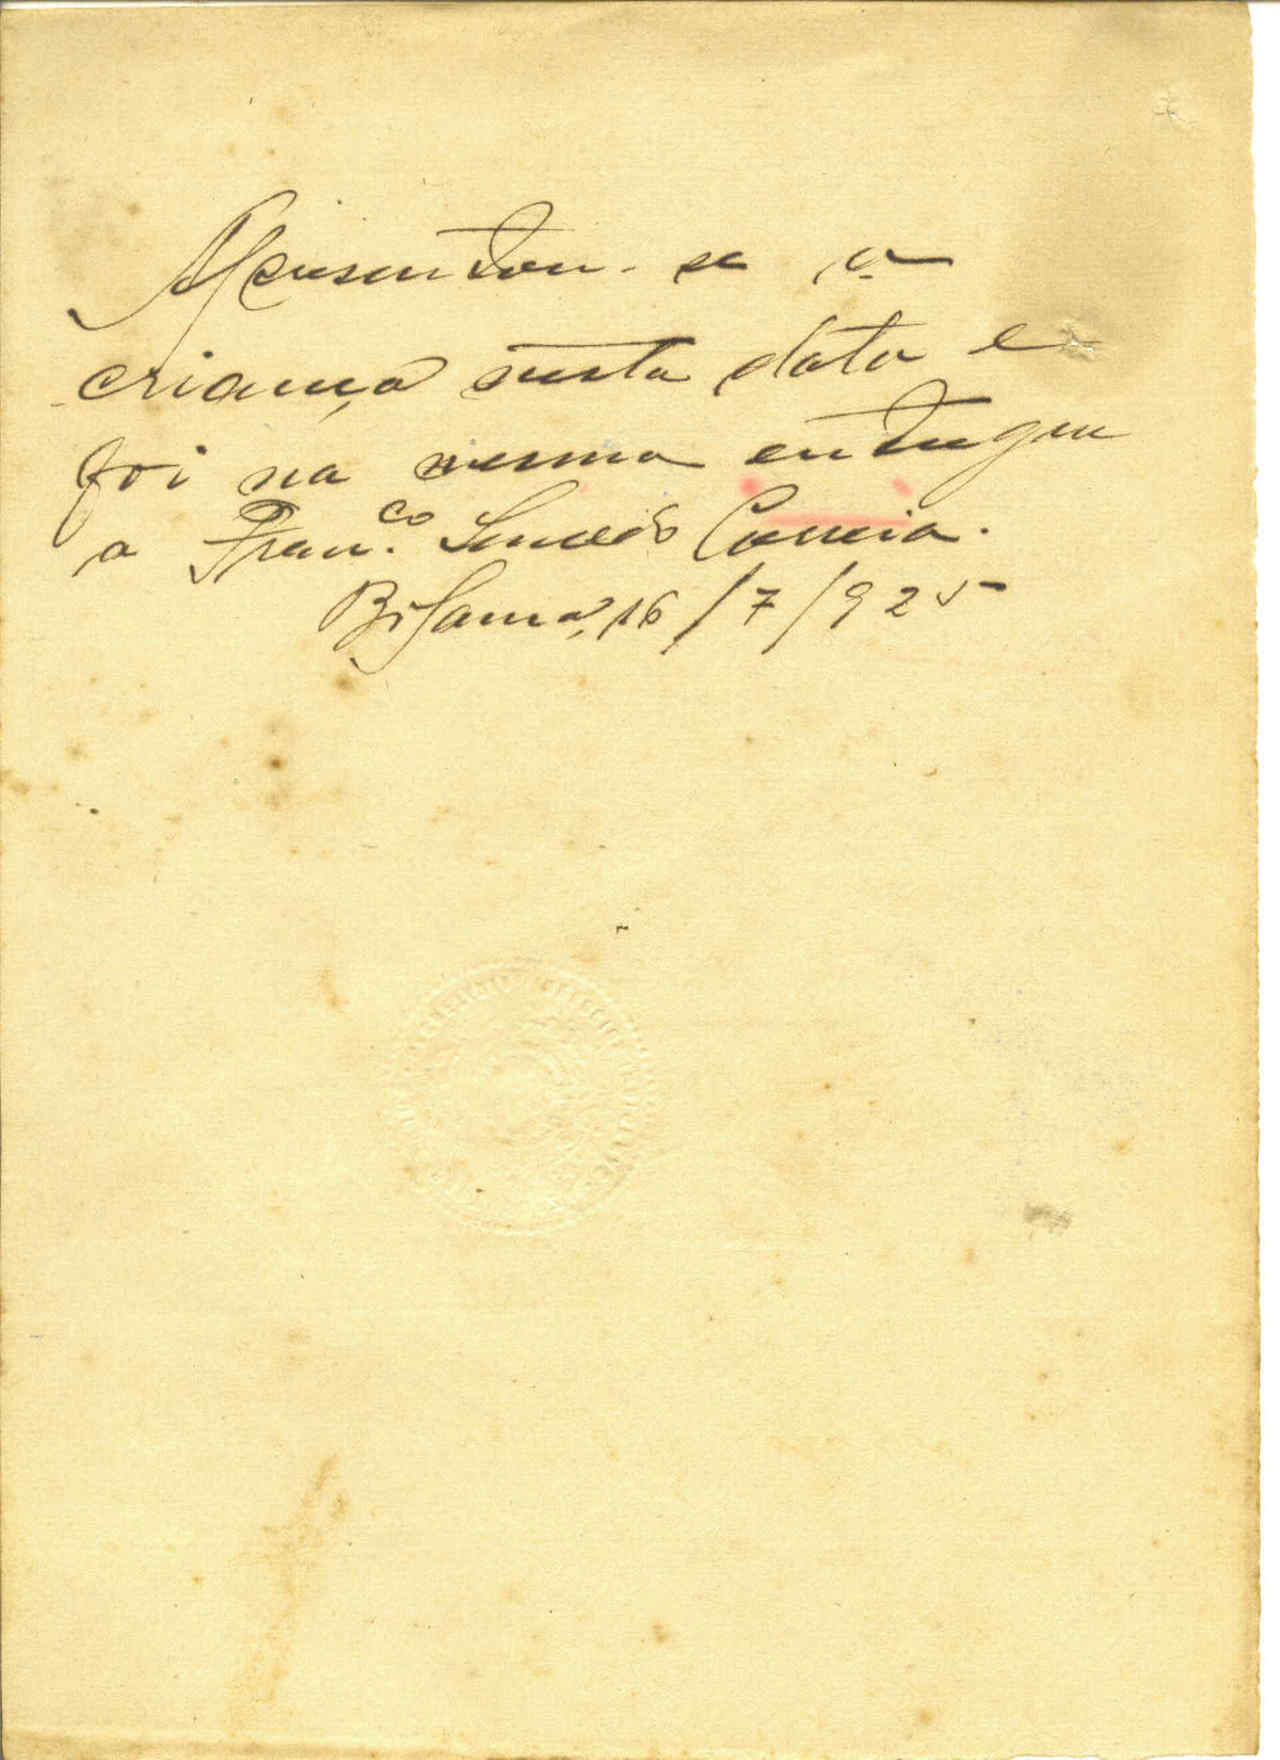 Apresentou-se a
criança nesta data e
foi na mesma entregue
a Fran.co Correia.
Bolama, 16/7/925